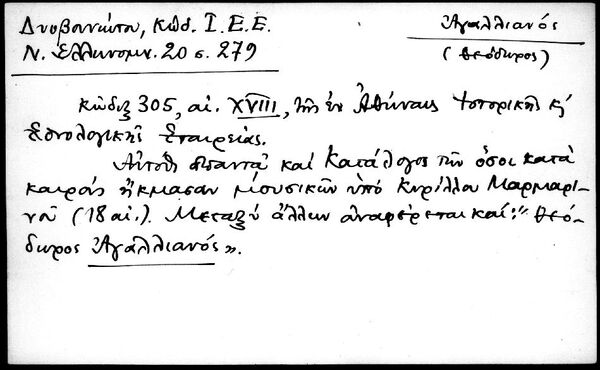 Δυοβουνιώτου, Κώδ. Ι.Ε.Ε.
Ν. Ἑλληνομν. 20 σ. 279
Ἀγαλλιανός
(Θεόδωρος)
Κῶδιξ 305, αἰ. XVIII, τῆς ἐν Ἀθήναις Ἱστορικῆς κ̣
Ἐθνολογικῆς Ἑταιρείας.
Αὐτόθι ἀπαντᾶ καὶ Κατάλογος τῶν ὅσοι κατὰ
καιροὺς ἤκμασαν μουσικῶν ὑπὸ Κυρίλλου Μαρμαρι-
νοῦ (18 αἰ.). Μεταξὺ ἄλλων ἀναφέρεται καί: "Θεό-
δωρος Ἀγαλλιανός».